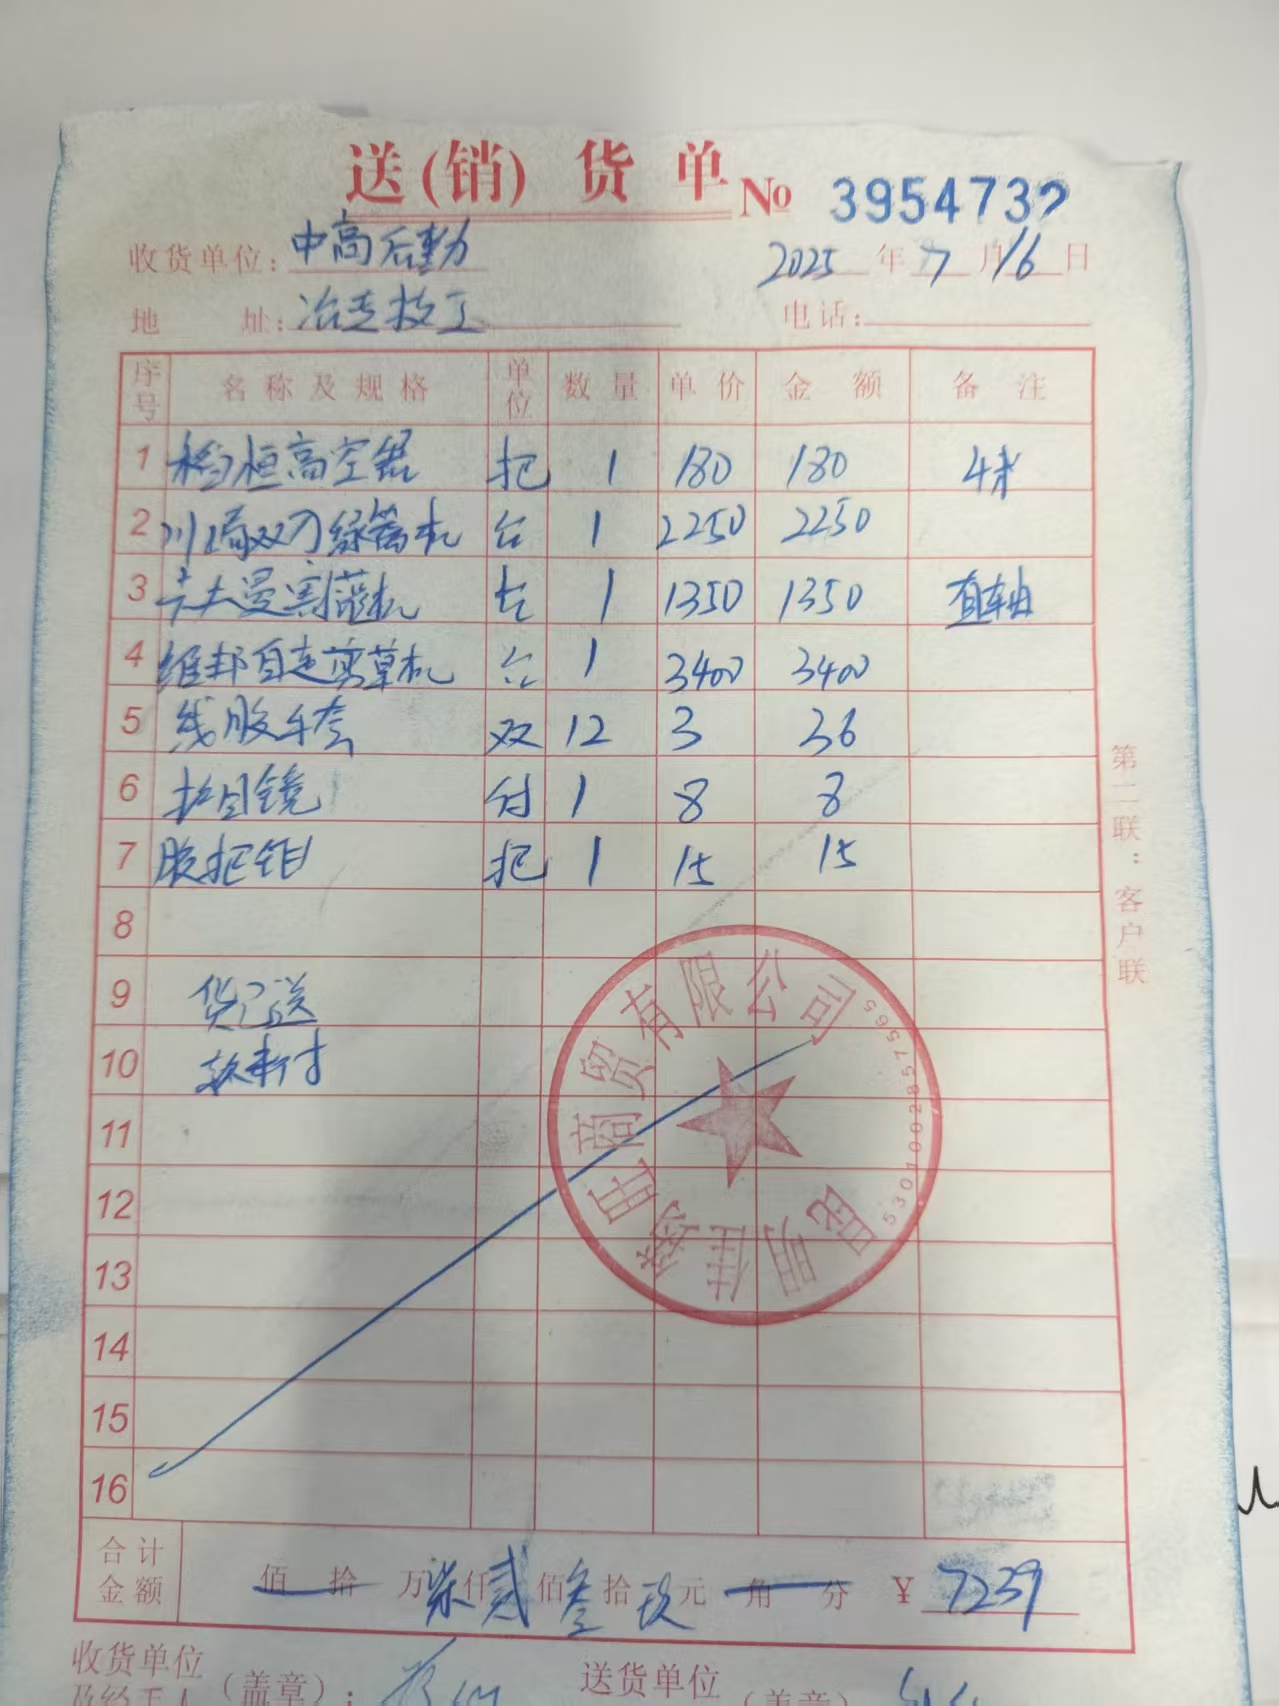 送(销)货单 № 3954732
收货单位：中高后勤 2025年7月16日
地址：冶专技工 电话：
序号 名称及规格 单位 数量 单价 金额 备注
1 高空锯 把 1 180 180 4米
2 双刀绿篱机 台 1 2250 2250
3 割灌机 台 1 1350 1350 直轴
4 维邦自走剪草机 台 1 3400 3400
5 线胶手套 双 12 3 36
6 护目镜 付 1 8 8
7 胶把钳 把 1 15 15
8
9 货已送
10 款未付
11
12
13
14
15
16
合计金额 佰拾万柒仟贰佰叁拾玖元角分 ￥7239
收货单位 送货单位
及经手人（盖章）： （盖章）
第二联：客户联
昆明佳 旺商贸有限公司
5301002857565